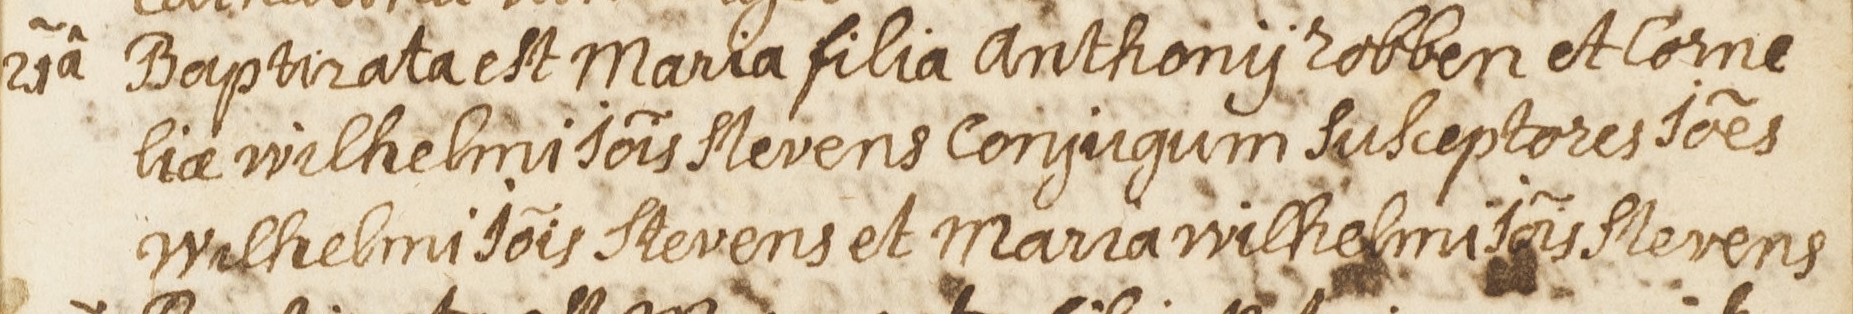 21ã Baptizata est Maria filia Anthonij robben et Corne
liæ wilhelmi Joı̃s Stevens Conjugum Susceptores Joẽs
Wilhelmi Joı̃s Stevens et Maria wilhelmi Joı̃s Stevens